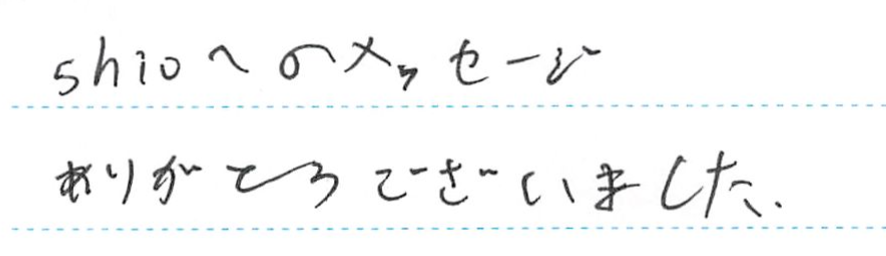 shioへのメッセージ
ありがとうございました.